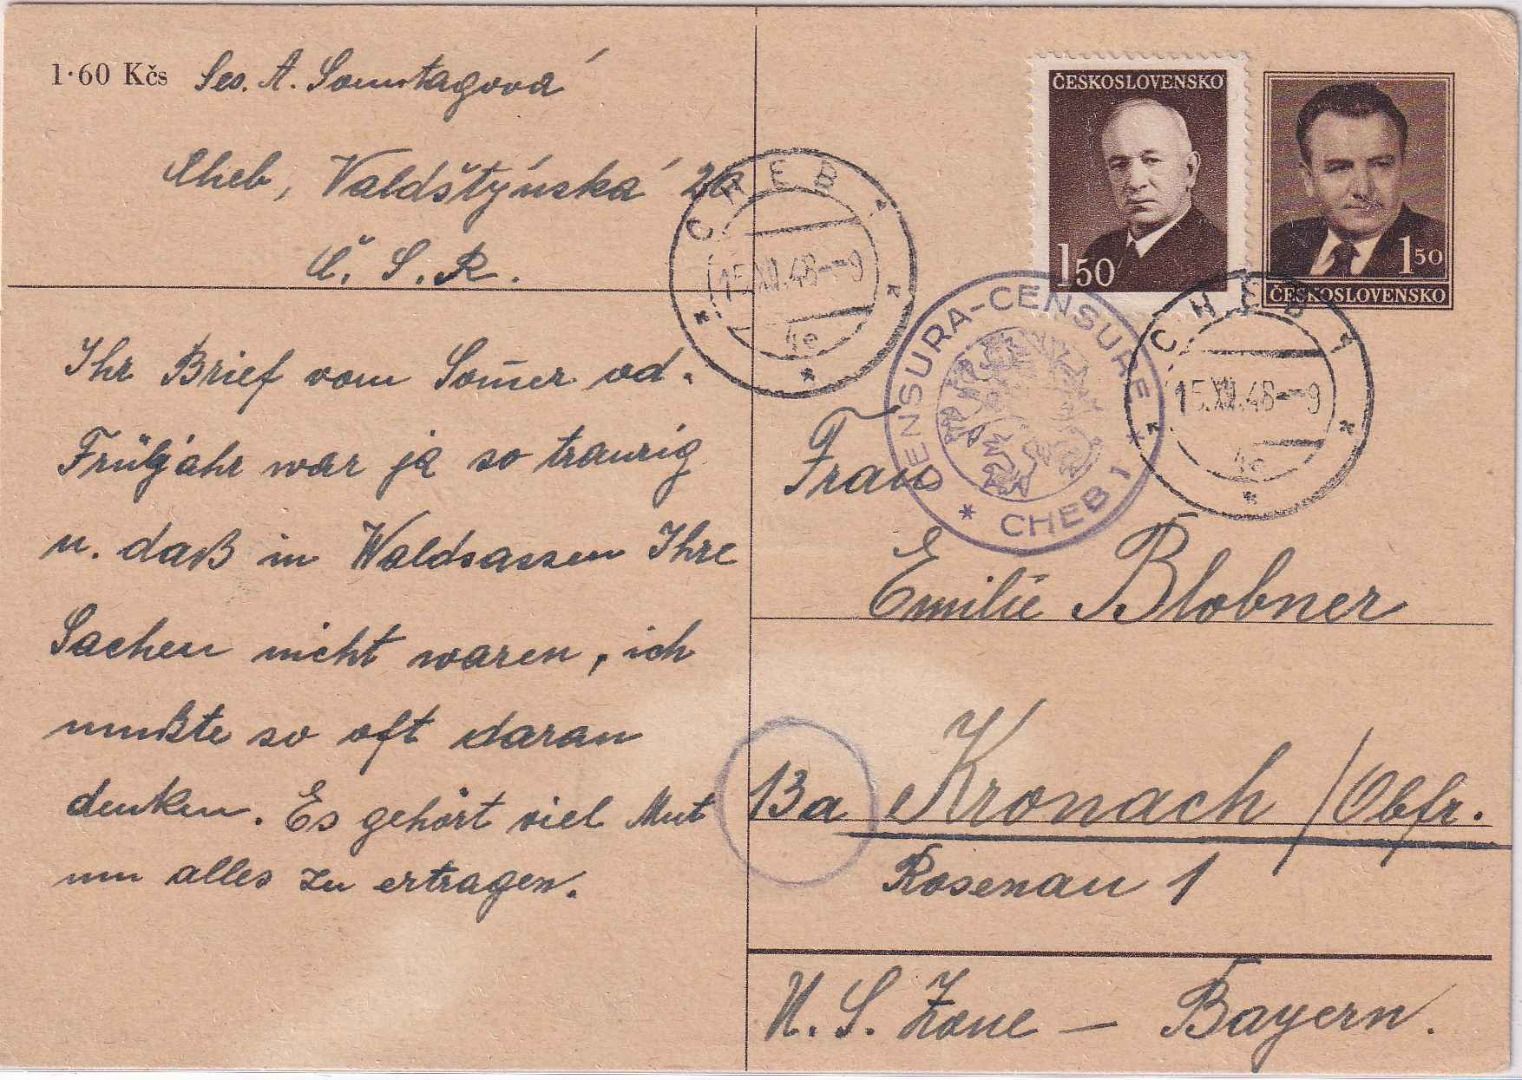 1·60 Kčs Ses. A. Sonntagová
Cheb, Valdštýnská 26
Č. S. R.
Ihr Brief vom Som̄er od.
Frühjahr war ja so traurig
u. daß in Waldsassen Ihre
Sachen nicht waren, ich
mußte so oft daran
denken. Es gehört viel Mut
um alles zu ertragen.
ČESKOSLOVENSKO
150
150
ČESKOSLOVENSKO
CHEB 1
15.XII.48--9
4e
CENSURA-CENSURE
* CHEB 1 *
CHEB 1
15.XII.48--9
4e
Frau
Emilie Blobner
13a Kronach /Obfr.
Rosenau 1
U. S. Zone — Bayern.